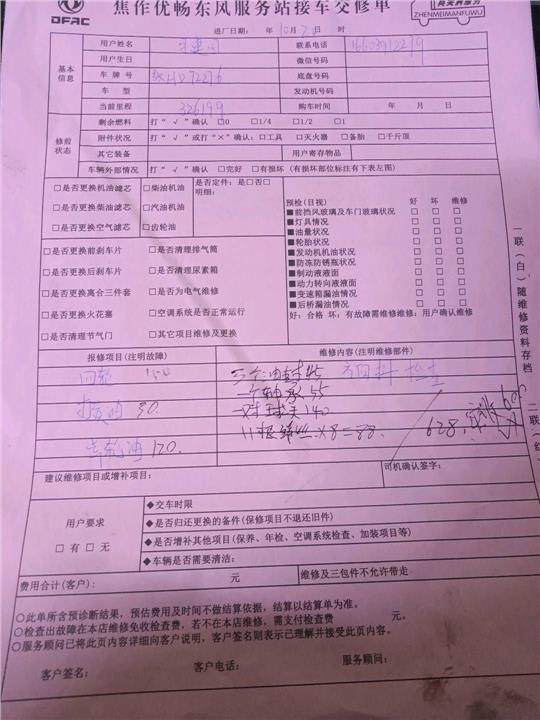 DFAC
焦作优畅东风服务站接车交修单
ZHENMEIMANFUWU
进厂日期: 年 10月 2日 时
基本信息
用户姓名 联系电话
用户生日 微信号码
车牌号 底盘号码
车型 发动机号码
当前里程 326199 购车时间 年 月 日
修前状态
剩余燃料 打“√”确认 □0 □1/4 □1/2 □1
附件状况 打“√”或打“×”确认:□工具 □灭火器 □备胎 □千斤顶
其它装备 用户寄存物品
车辆外部情况 打“√”确认 □完好 □有损坏(有损坏部位标注有下表左图)
□是否更换机油滤芯 □柴油机油 是否定件:是□否□
明细:
□是否更换柴油滤芯 □汽油机油
□是否更换空气滤芯 □齿轮油
□是否更换前刹车片 □是否清理排气筒
□是否更换后刹车片 □是否清理尿素箱
□是否更换离合三件套 □是否为电气维修
□是否更换火花塞 □空调系统是否正常运行
□是否清理节气门 □其它项目维修及更换
预检(目视) 好 坏 维修
■前挡风玻璃及车门玻璃状况 □ □ □
■灯具情况 □ □ □
■油量状况 □ □ □
■轮胎状况 □ □ □
■发动机机油状况 □ □ □
■防冻防锈瓶状况 □ □ □
■制动液液面 □ □ □
■动力转向液液面 □ □ □
■变速箱漏油情况 □ □ □
■后桥漏油情况 □ □ □
好:合格 坏:有故障需维修维修:用户确认维修
报修项目(注明故障) 维修内容(注明维修部件)
150 三个油封45 检查
30. 一个轴承55
一对球头140
齿轮油 120. 11根螺丝×8=88. 628.
建议维修项目或增补项目: 司机确认签字:
用户要求
□有 □无
◆交车时限
◆是否归还更换的备件(保修项目不退还旧件)
◆是否增补其他项目(保养、年检、空调系统检查、加装项目等)
◆车辆是否需要清洁:
费用合计(客户): 元 维修及三包件不允许带走
○此单所含预诊断结果,预估费用及时间不做结算依据,结算以结算单为准。
○检查出故障在本店维修免收检查费,若不在本店维修,需支付检查费 元。
○服务顾问已将此页内容详细向客户说明,客户签名则表示已理解并接受此页内容。
客户签名: 客户电话: 服务顾问:
一联(白)随维修资料存档
二联(红)